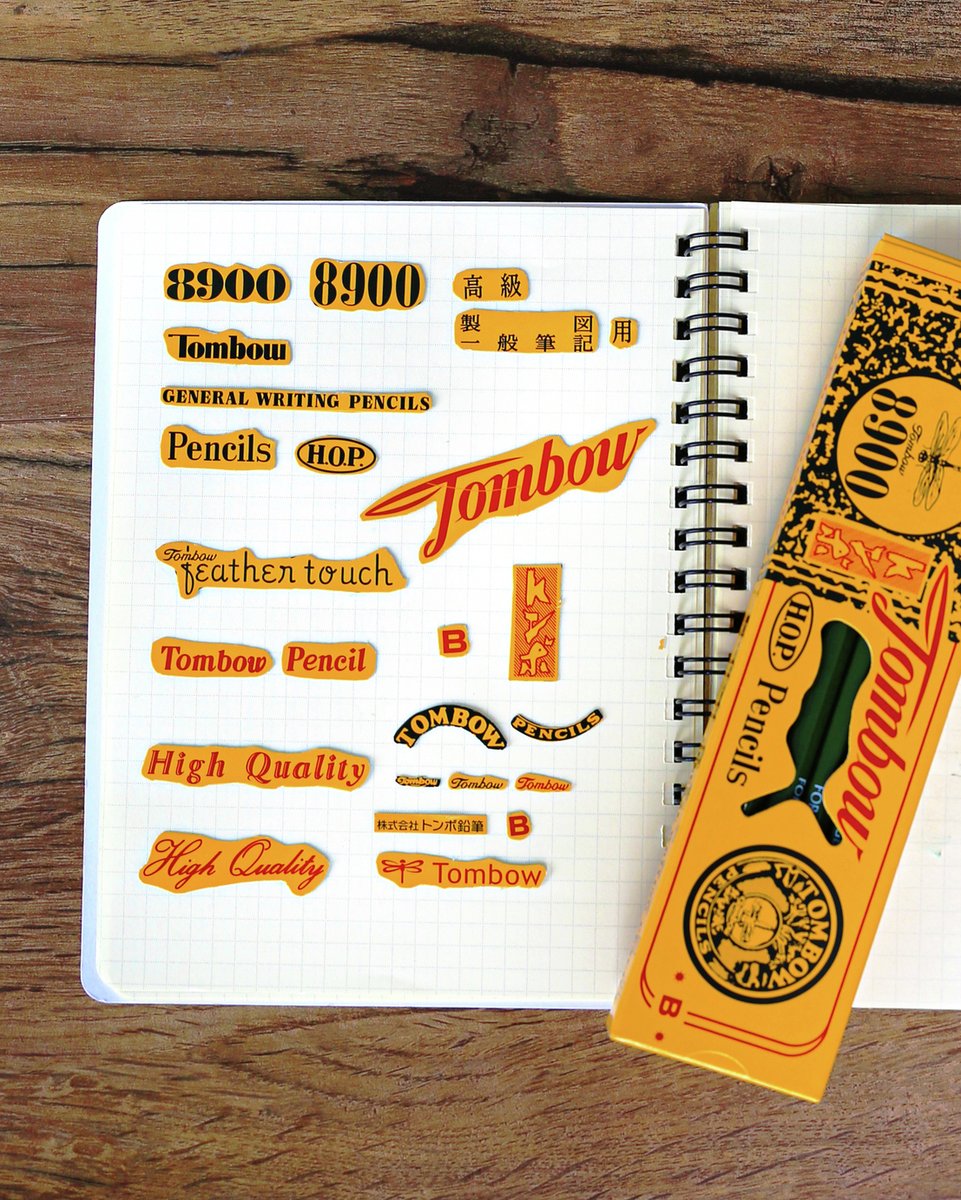 8900
8900
高級
製図
一般筆記
用
Tombow
GENERAL WRITING PENCILS
Pencils
H.O.P.
Tombow
Tombow
feather touch
トンボ
B
Tombow
Pencil
TOMBOW
PENCILS
High Quality
Tombow
Tombow
Tombow
株式会社トンボ鉛筆
B
High Quality
Tombow
8900
Tombow
トンボ
Tombow
H.O.P.
Pencils
FOR
TOMBOW
PENCILS
B